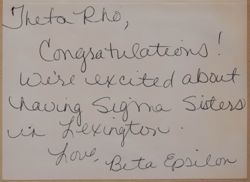 Theta Rho,
Congratulations!
We're excited about
having Sigma Sisters
in Lexington.
Love,
Beta Epsilon